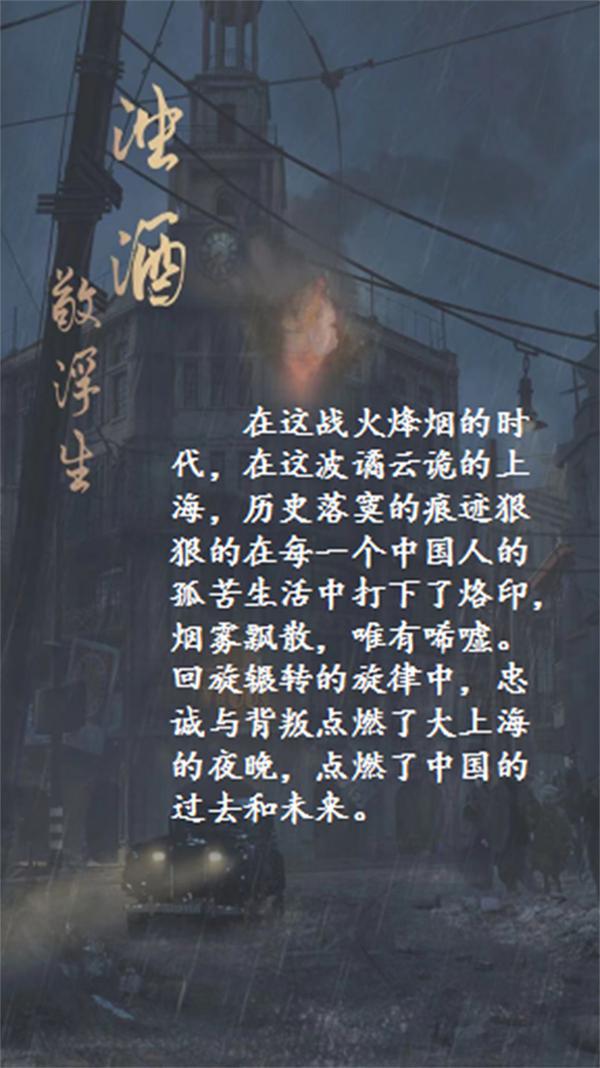 浊酒
敬浮生
在这战火烽烟的时
代，在这波谲云诡的上
海，历史落寞的痕迹狠
狠的在每一个中国人的
孤苦生活中打下了烙印，
烟雾飘散，唯有唏嘘。
回旋辗转的旋律中，忠
诚与背叛点燃了大上海
的夜晚，点燃了中国的
过去和未来。